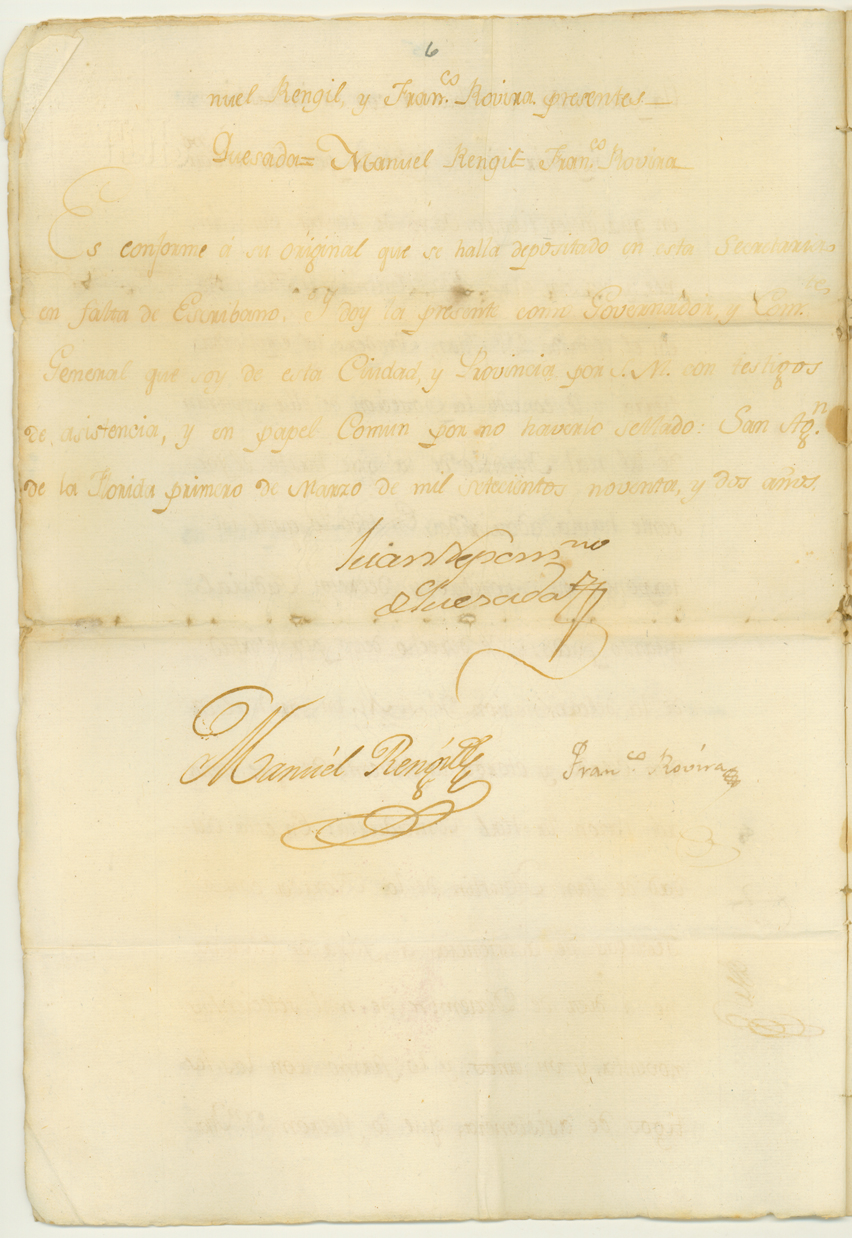 6
nuel Rengil, y Fran.co Rovira presentes
Quesada= Manuel Rengil= Fran.co Rovira
Es conforme á su original que se halla depositado en esta Secretaria
en falta de Escribano, y doy la presente como Governador, y Com.te
General que soy de esta Ciudad, y Provincia por S. M. con testigos
de asistencia, y en papel Comun por no haverlo sellado: San Ag.n
de la Florida primero de Marzo de mil setecientos noventa, y dos años.
Juan Nepom.no
de Quesada
Manuél Rengil
Fran.co Rovira